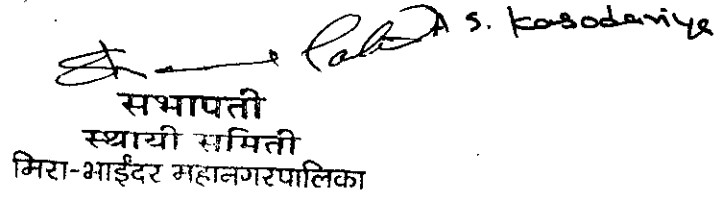 A S. Kasodariya
सभापती
स्थायी समिती
मिरा-भाईंदर महानगरपालिका